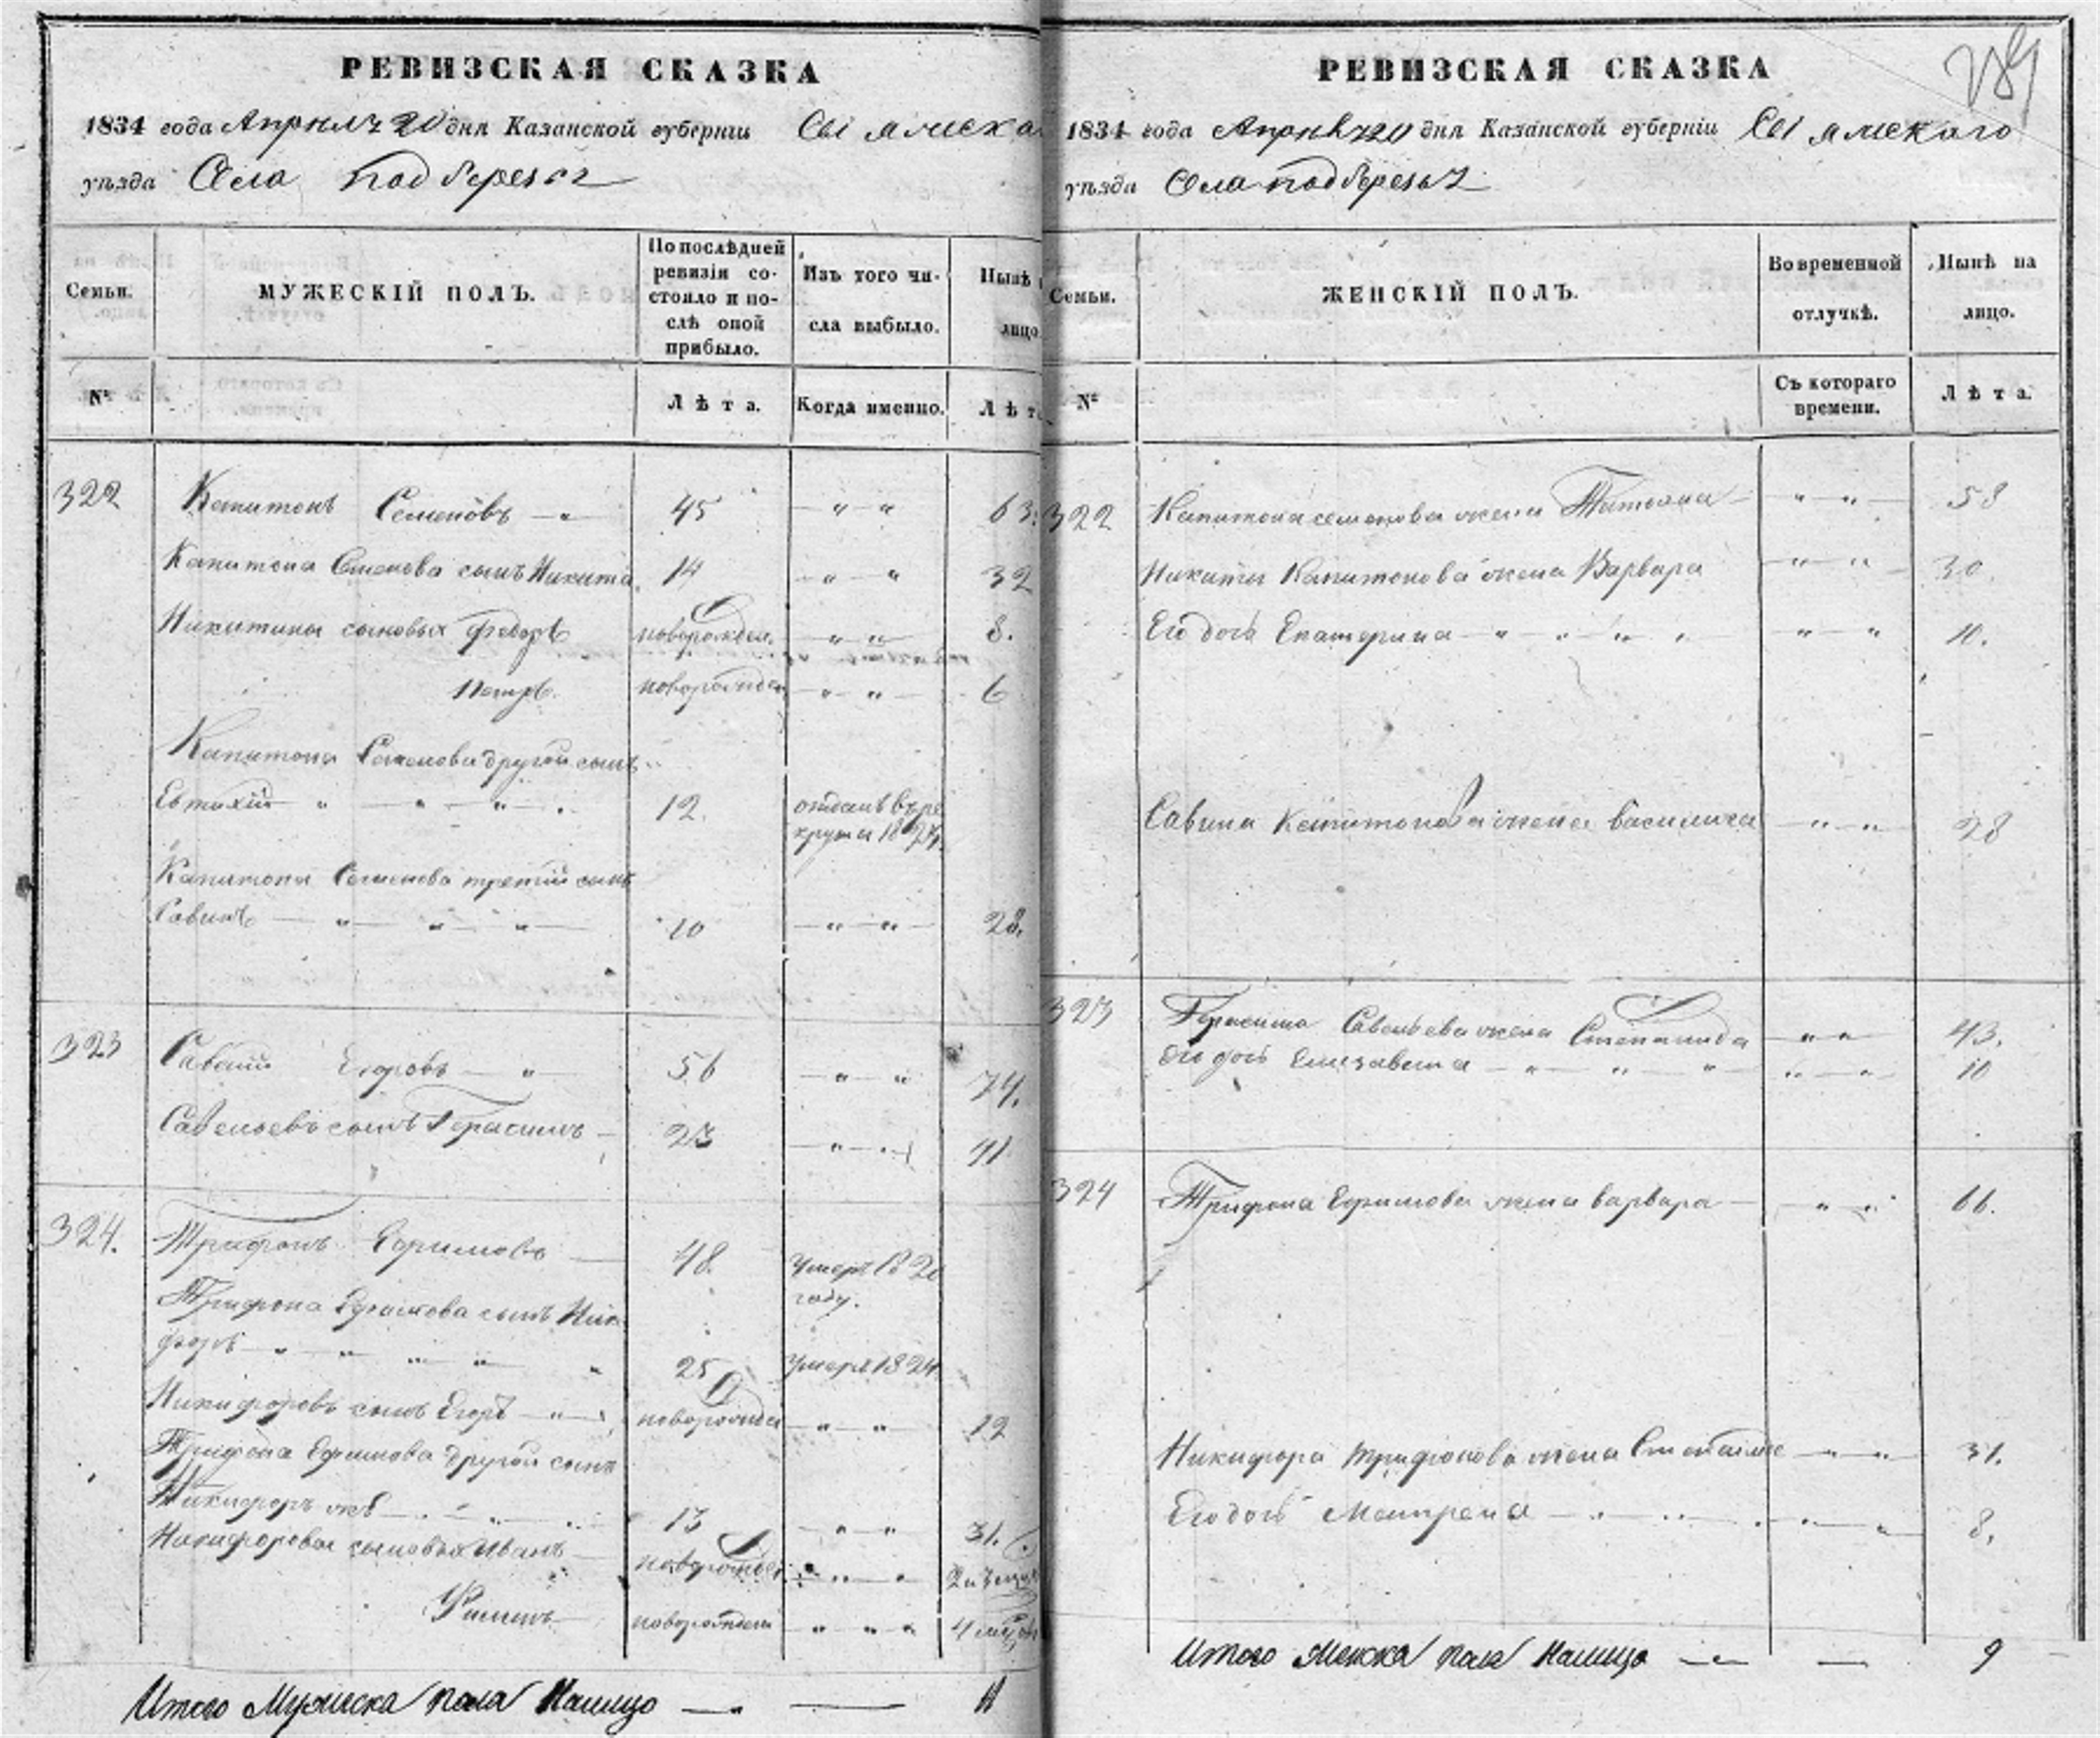 РЕВИЗСКАЯ СКАЗКА
1834 года Апреля 20 дня Казанской губернiи Свiяжска
уѣзда Села Подберезья
Семьи.
МУЖЕСКIЙ ПОЛЪ.
По послѣдней
ревизiи со-
стояло и по-
слѣ оной
прибыло.
Изъ того чи-
сла выбыло.
Нынѣ
лицо
№
Лѣта.
Когда именно.
Лѣт
322
Капитонъ Семеновъ
45
63.
Капитона Семенова сынъ Никита
14
32
Никитины сыновья Федоръ
новорожден.
8.
Петръ
новорожден
6
Капитона Семенова другой сынъ
Евтихiй
12.
отданъ въ ре
круты 1827.
Капитона Семенова третiй сынъ
Савинъ
10
28.
323
Савелiй Егоровъ
56
74.
Савельевъ сынъ Герасимъ
23
41
324.
Трифонъ Ефимовъ
48.
Умеръ 1820
году.
Трифона Ефимова сынъ Ники
форъ
25
Умеръ 1824.
Никифоровъ сынъ Егоръ
новорожде
12
Трифона Ефимова другой сынъ
Никифоръ же
13
31.
Никифоровы сыновья Иванъ
новорожде
новорожден
4
Итого Мужеска пола Налицо
11
РЕВИЗСКАЯ СКАЗКА
1834 года Апреля 20 дня Казанской губернiи Свiяжскаго
уѣзда Села Подберезья
Семьи.
ЖЕНСКIЙ ПОЛЪ.
Во временной
отлучкѣ.
Нынѣ на
лицо.
№
Съ котораго
времени.
Лѣта.
322
Капитона Семенова жена Татьяна
58
Никиты Капитонова жена Варвара
30.
Его дочь Екатерина
10.
Савина Капитонова жена Василиса
28
323
Герасима Савельева жена Степанида
43.
Его дочь Елизавета
10
324
Трифона Ефимова жена Варвара
66.
Никифора Трифонова жена
31.
Его дочь Матрена
8.
Итого Женска пола Налицо
9